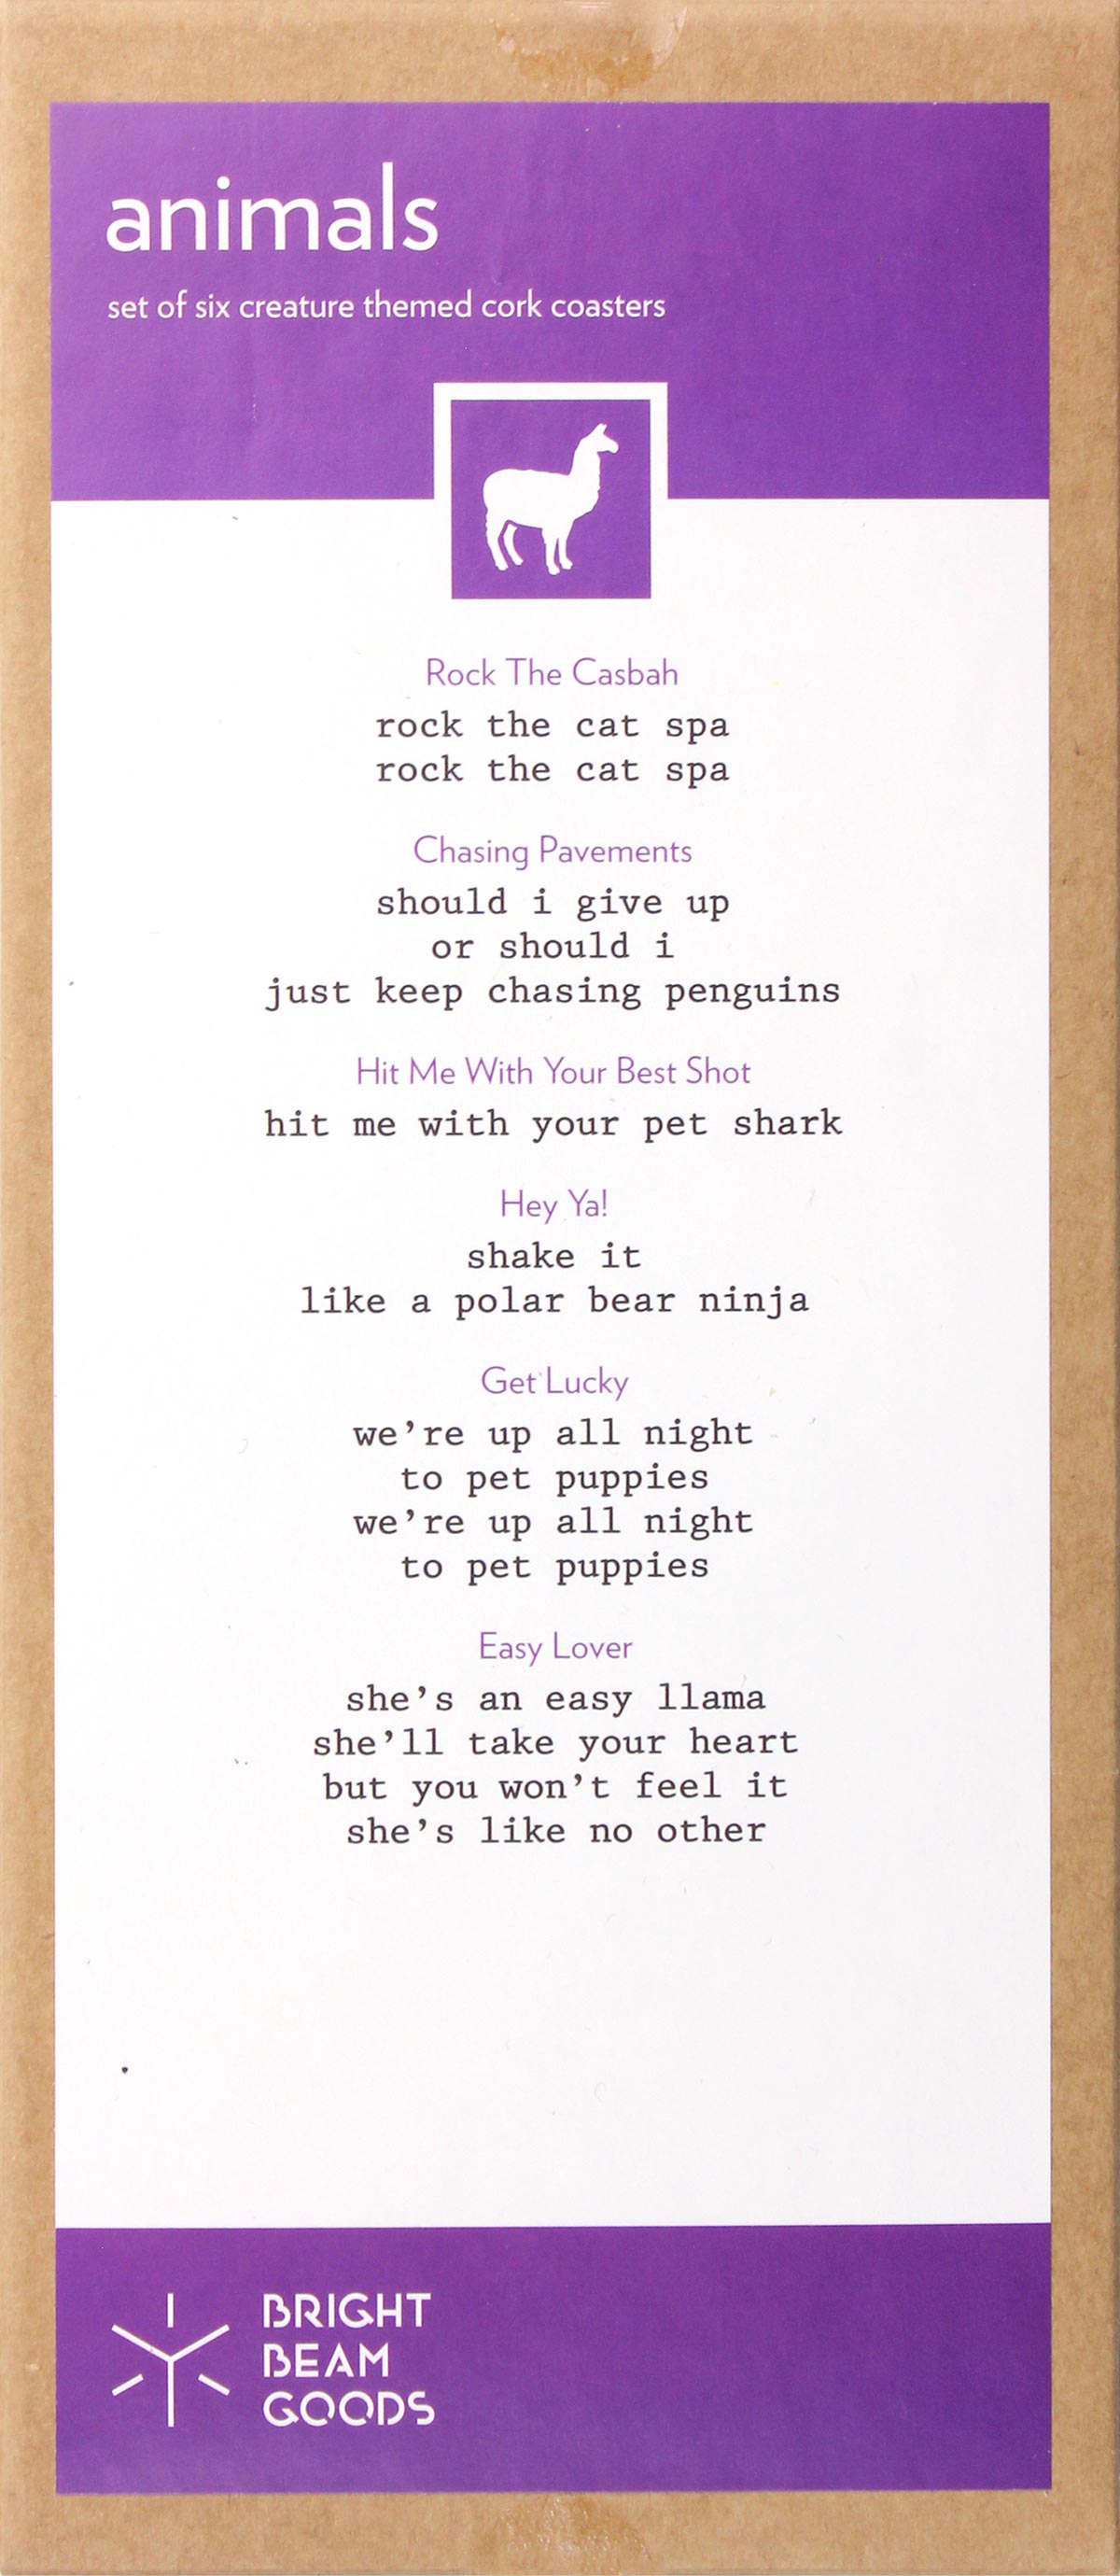 animals
set of six creature themed cork coasters
Rock The Casbah
rock the cat spa
rock the cat spa
Chasing Pavements
should i give up
or should i
just keep chasing penguins
Hit Me With Your Best Shot
hit me with your pet shark
Hey Ya!
shake it
like a polar bear ninja
Get Lucky
we’re up all night
to pet puppies
we’re up all night
to pet puppies
Easy Lover
she’s an easy llama
she’ll take your heart
but you won’t feel it
she’s like no other
BRIGHT
BEAM
GOODS